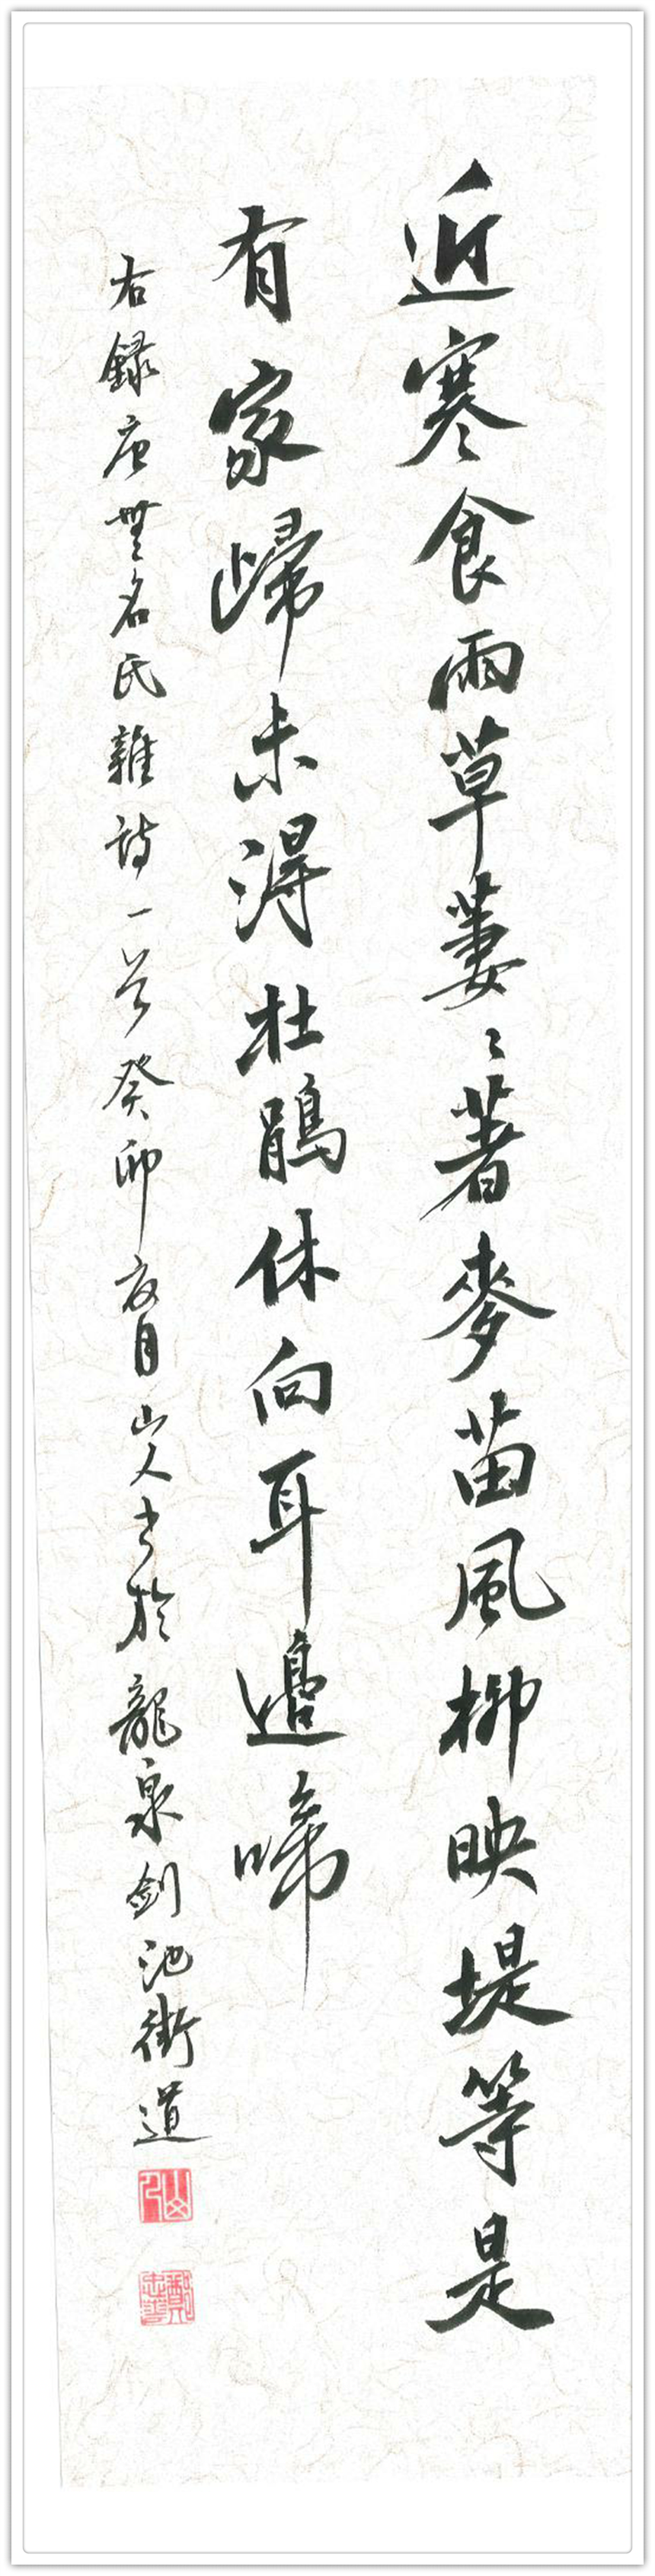 近寒食雨草萋〻著麥苗風柳映堤等是
有家歸未得杜鵑休向耳邊啼
右録唐無名氏雜詩一首癸卯夏月山人書於龍泉劍池街道
山人
鄭忠善